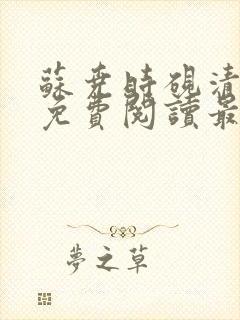 蘇堯時硯清
免費閱讀最
夢之草